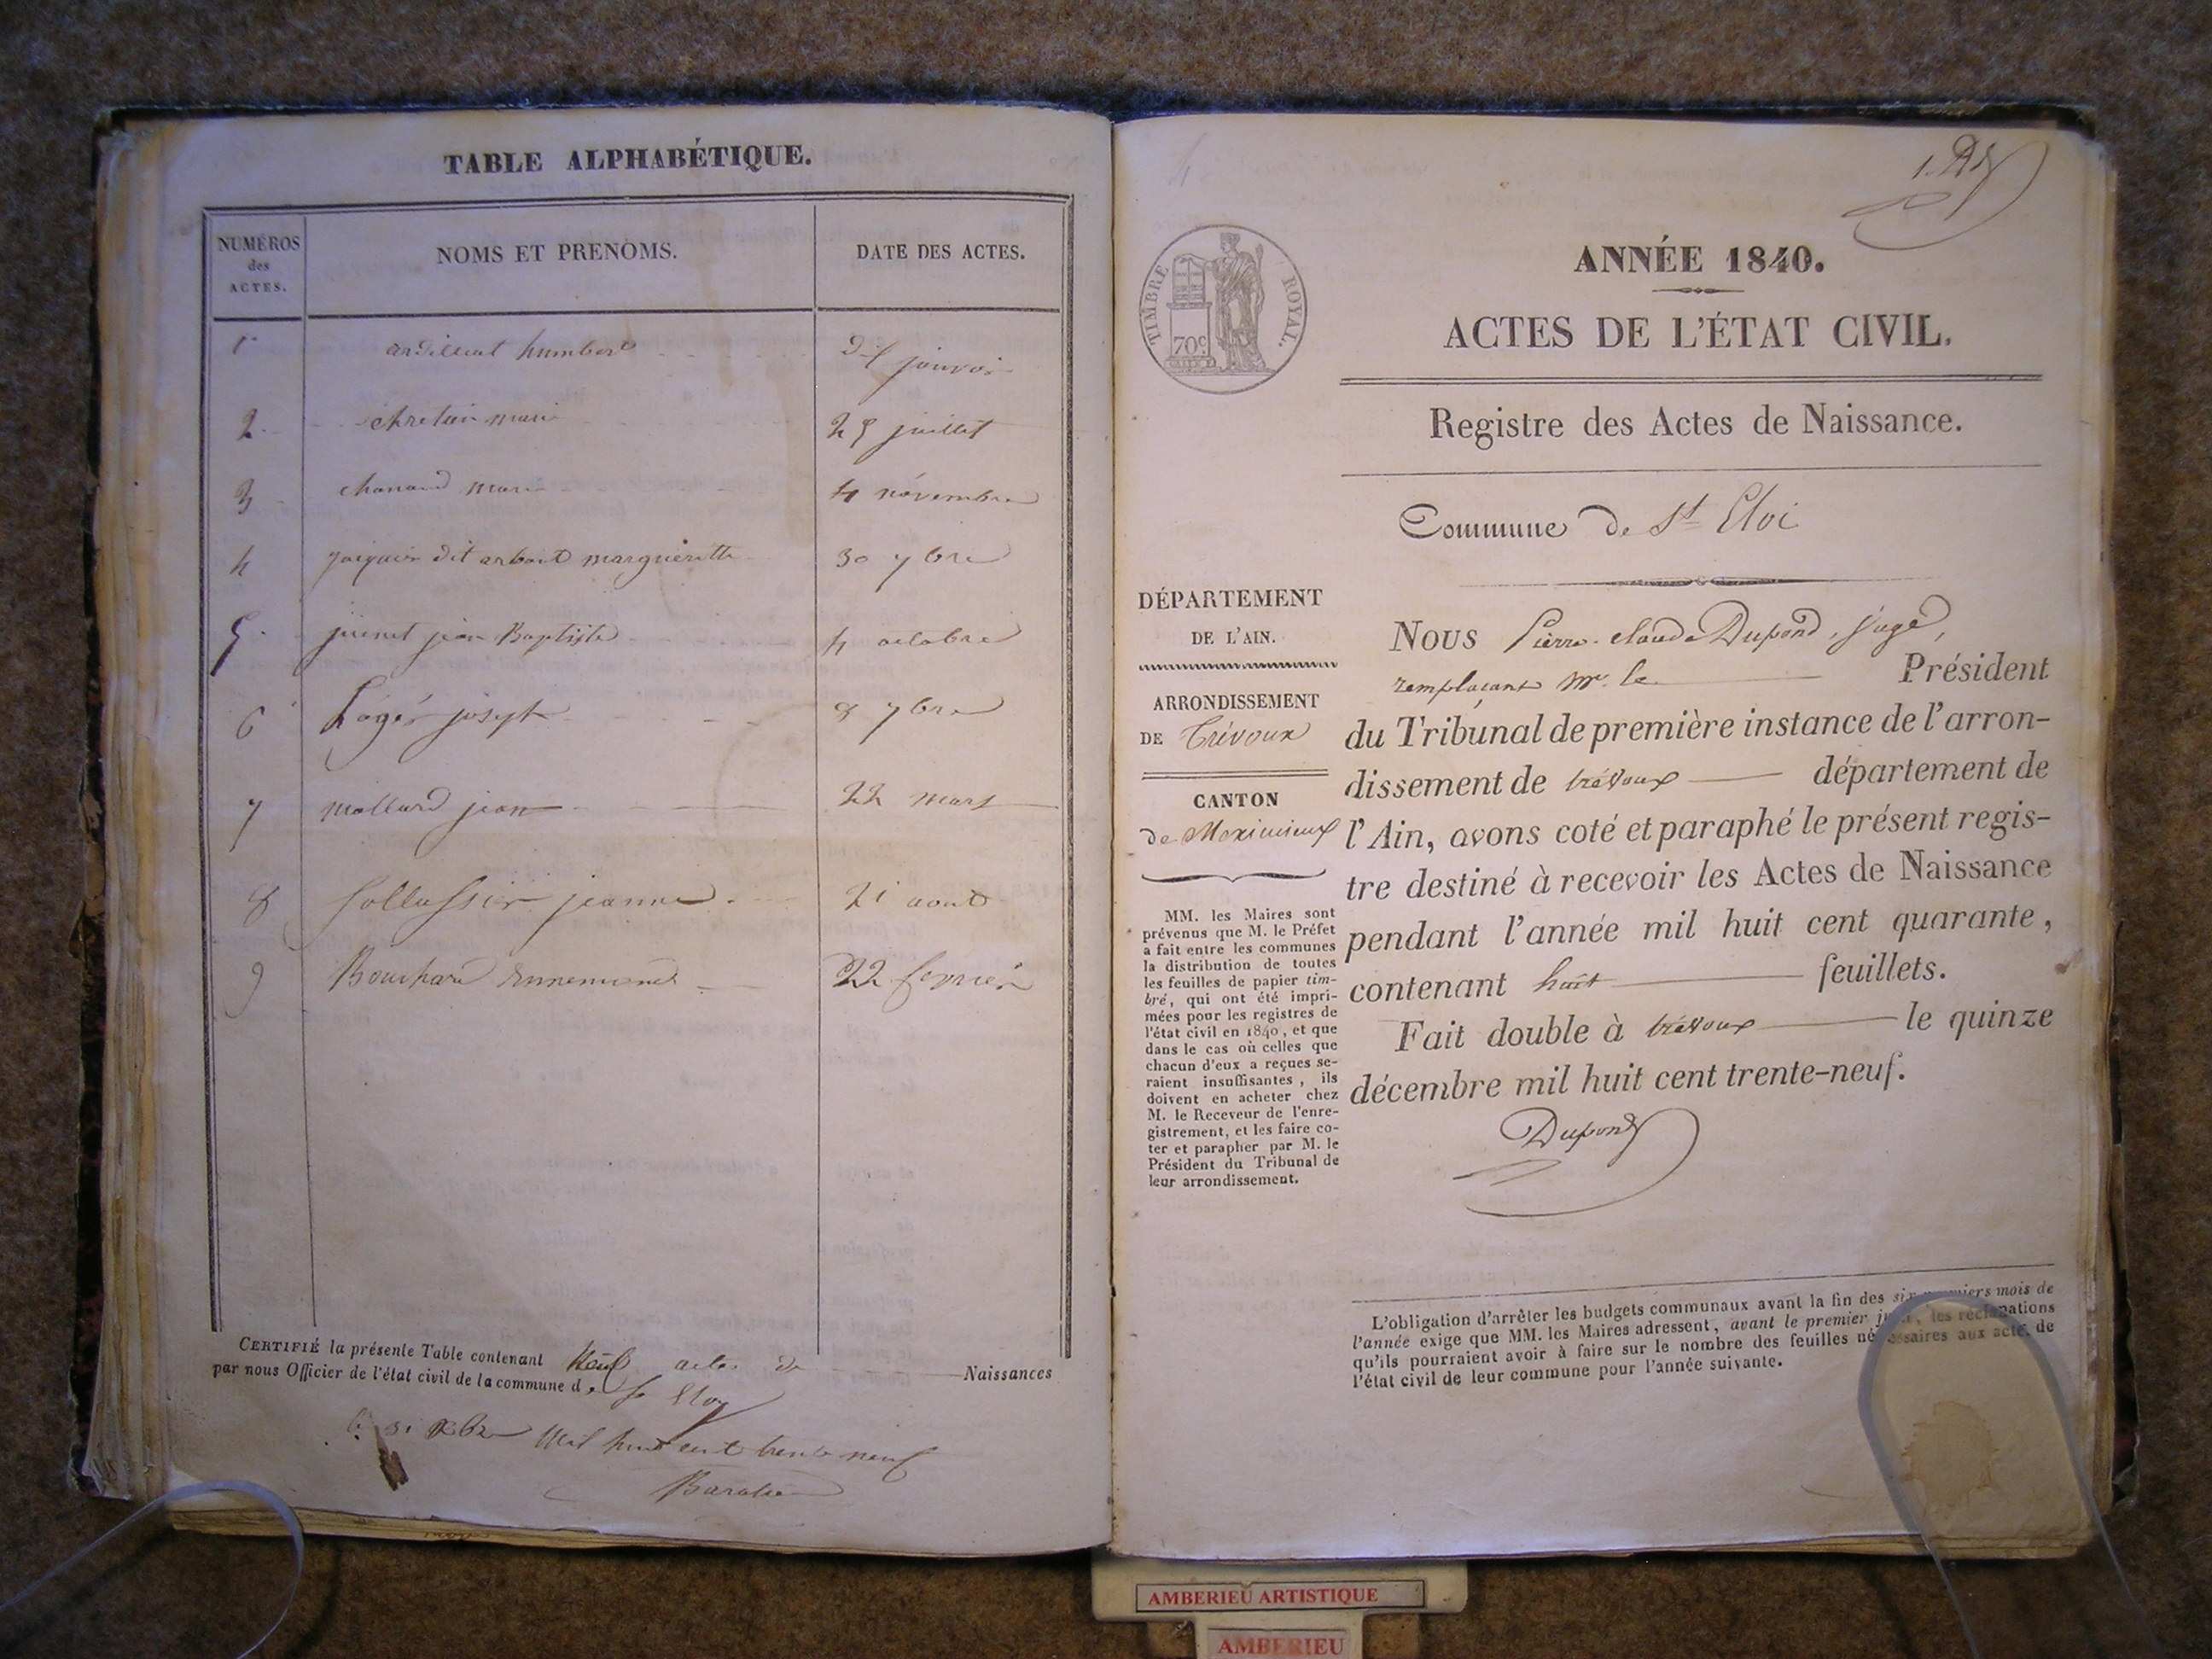 TABLE ALPHABÉTIQUE.
NUMÉROS
des
ACTES.
NOMS ET PRENOMS.
DATE DES ACTES.
1 humbert
2 chretien marie 25 juillet
3 chanard marie 4 novembre
4 dit margueritte 30 7bre
5 jean Baptiste 4 octobre
6 Logér joseph 8 7bre
7 mollard jean 22 mars
8 jeanne 21 aout
9 Bouchard 22 fevrier
CERTIFIÉ la présente Table contenant Neuf actes de Naissances
par nous Officier de l'état civil de la commune de St Eloy
le 31 Xbre Mil huit cent trente neuf
1. 
TIMBRE ROYAL.
70c
ANNÉE 1840.
ACTES DE L'ÉTAT CIVIL.
Registre des Actes de Naissance.
Commune de St Eloi
DÉPARTEMENT
DE L'AIN.
ARRONDISSEMENT
DE Trévoux
CANTON
de Meximieux
MM. les Maires sont
prévenus que M. le Préfet
a fait entre les communes
la distribution de toutes
les feuilles de papier tim-
bré, qui ont été impri-
mées pour les registres de
l'état civil en 1840, et que
dans le cas où celles que
chacun d'eux a reçues se-
raient insuffisantes, ils
doivent en acheter chez
M. le Receveur de l'enre-
gistrement, et les faire co-
ter et parapher par M. le
Président du Tribunal de
leur arrondissement.
Nous Pierre-claude Dupond, juge,
remplaçant Mr. le Président
du Tribunal de première instance de l'arron-
dissement de trévoux département de
l'Ain, avons coté et paraphé le présent regis-
tre destiné à recevoir les Actes de Naissance
pendant l'année mil huit cent quarante,
contenant huit feuillets.
Fait double à trévoux le quinze
décembre mil huit cent trente-neuf.
Dupond
L'obligation d'arrêter les budgets communaux avant la fin des six premiers mois de
l'année exige que MM. les Maires adressent, avant le premier juin, les réclamations
qu'ils pourraient avoir à faire sur le nombre des feuilles nécessaires aux actes de
l'état civil de leur commune pour l'année suivante.
AMBERIEU ARTISTIQUE
AMBERIEU